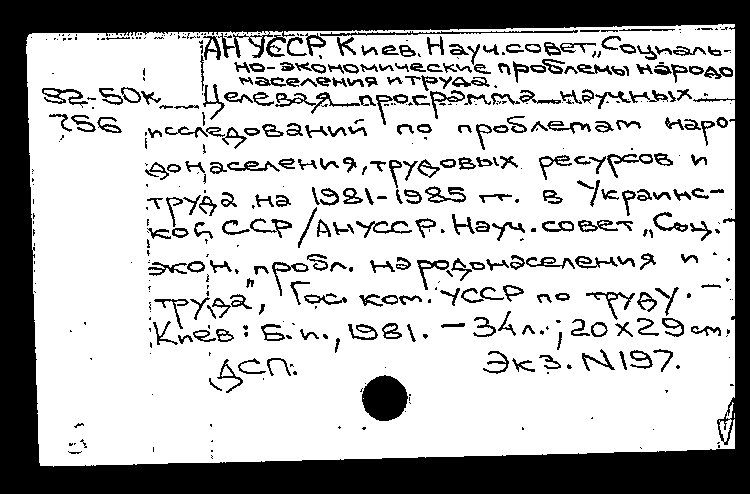 АН УССР Киев. Науч. совет „Социаль-
но-экономические проблемы народо
населения и труда.
82-50к Целевая программа научных
756 исследований по проблемам наро-
донаселения, трудовых ресурсов и
труда на 1981-1985 гг. в Украинс-
кой ССР / АН УССР. Науч. совет „Соц.-
экон. пробл. народонаселения и
труда", Гос. ком. УССР по труду. –
Киев: Б. и., 1981. – 34 л.; 20 X 29 см.
ДСП. Экз. N 197.